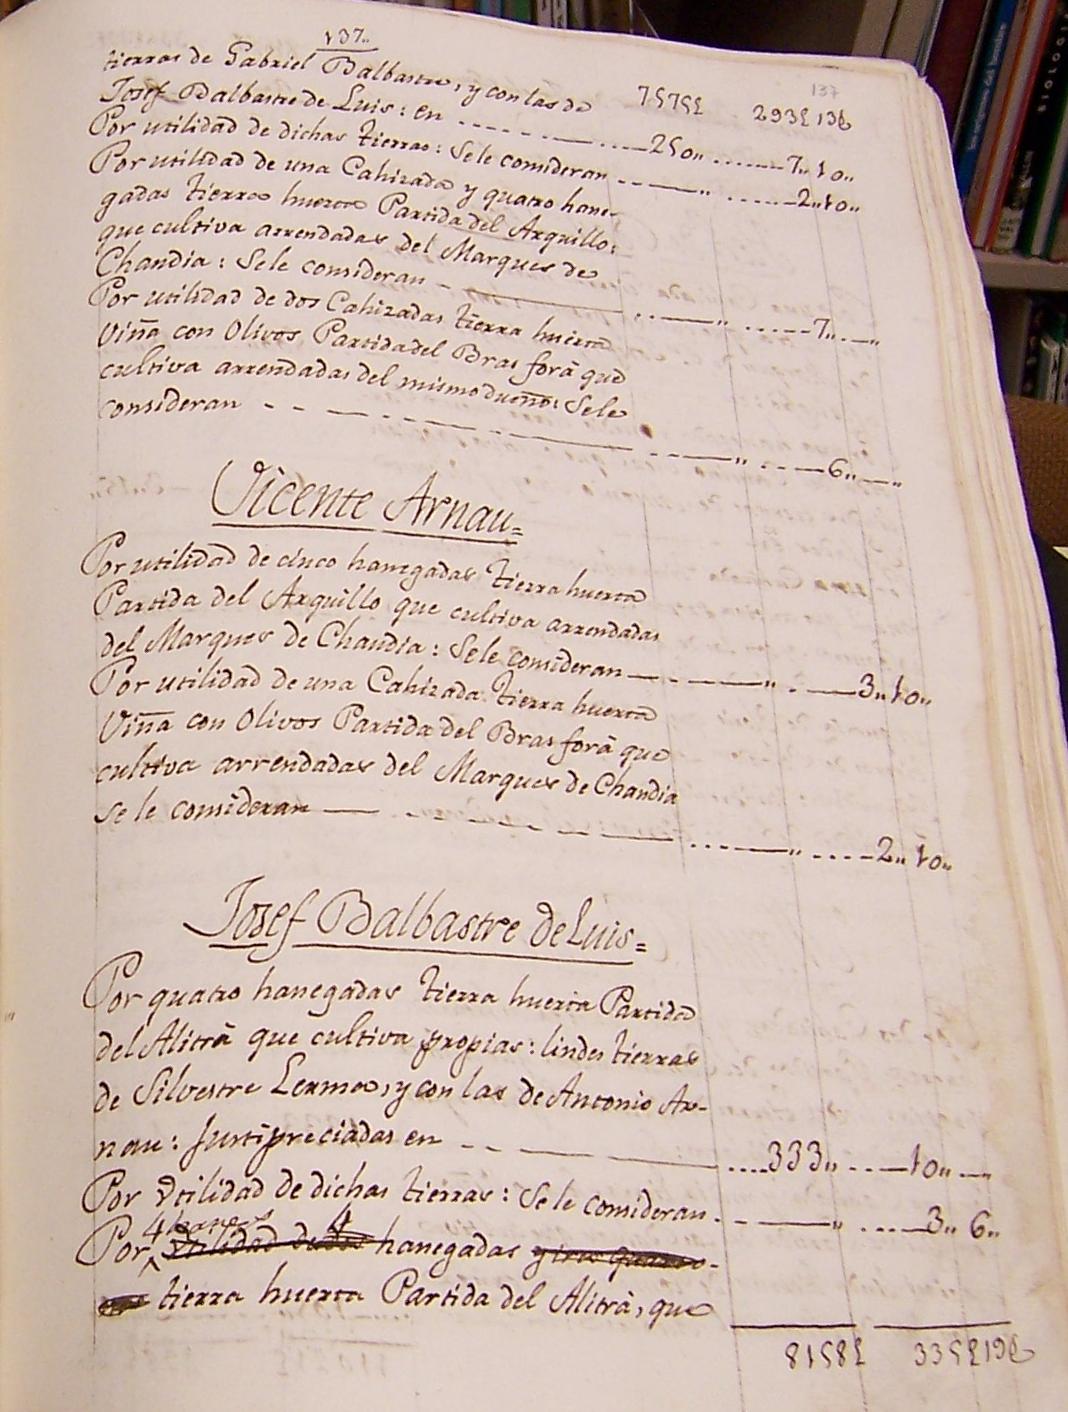 137..
137
tierras de Gabriel Balbastre, y con las de 7575£ 293£13₰
Josef Balbastre de Luis: en 250,, 7,,10,,
Por utilidad de dichas tierras: Sele consideran ,, 2,,10,,
Por utilidad de una Cahizada y quatro hane-
gadas tierra huerta Partida del Arquillo:
que cultiva arrendadas del Marques de
Chandia: Sele consideran ,, 7,, ,,
Por utilidad de dos Cahizadas tierra huerta
Viña con Olivos Partida del Bras forà que
cultiva arrendadas del mismo dueño: Sele
consideran ,, 6,, ,,
Vicente Arnau=
Por utilidad de cinco hanegadas tierra huerta
Partida del Arquillo que cultiva arrendadas
del Marques de Chandia: Sele consideran ,, 3,,10,,
Por utilidad de una Cahizada tierra huerta
Viña con Olivos Partida del Bras forà que
cultiva arrendadas del Marques de Chandia
se le consideran ,, 2,,10,,
Josef Balbastre de Luis=
Por quatro hanegadas tierra huerta Partida
del Alitrà que cultiva propias: lindes tierras
de Silvestre Lerma, y con las de Antonio Ar-
nau: Justipreciadas en 333,, 10,, ,,
Por vtilidad de dichas tierras: Sele consideran ,, 3,,6,,
4 4
Por vtilidad de dos hanegadas y tres quartos
tierra huerta Partida del Alitrà, que
8158£ 335£19₰